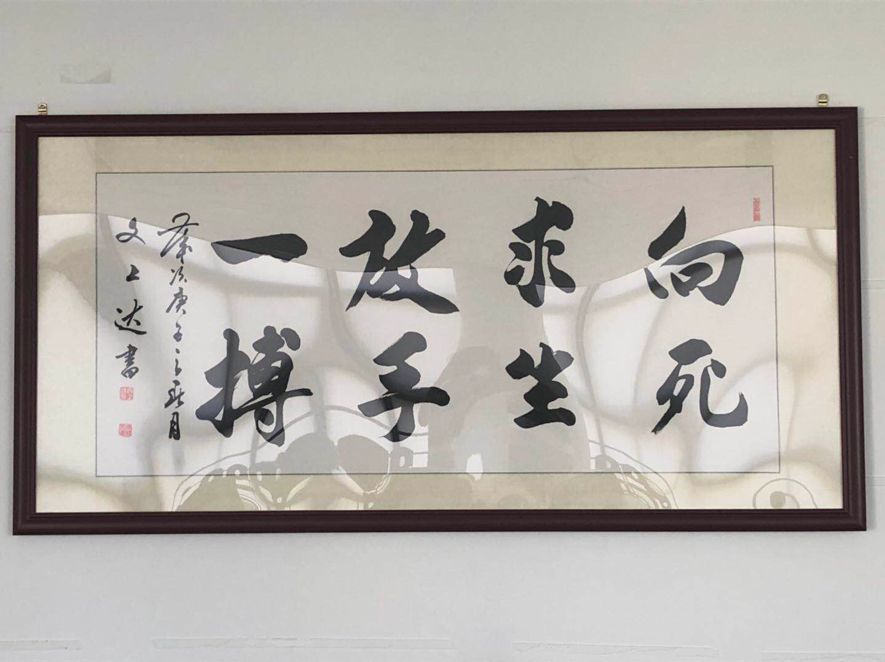 向死
求生
放手
一搏
岁次庚子之秋月
文上达书